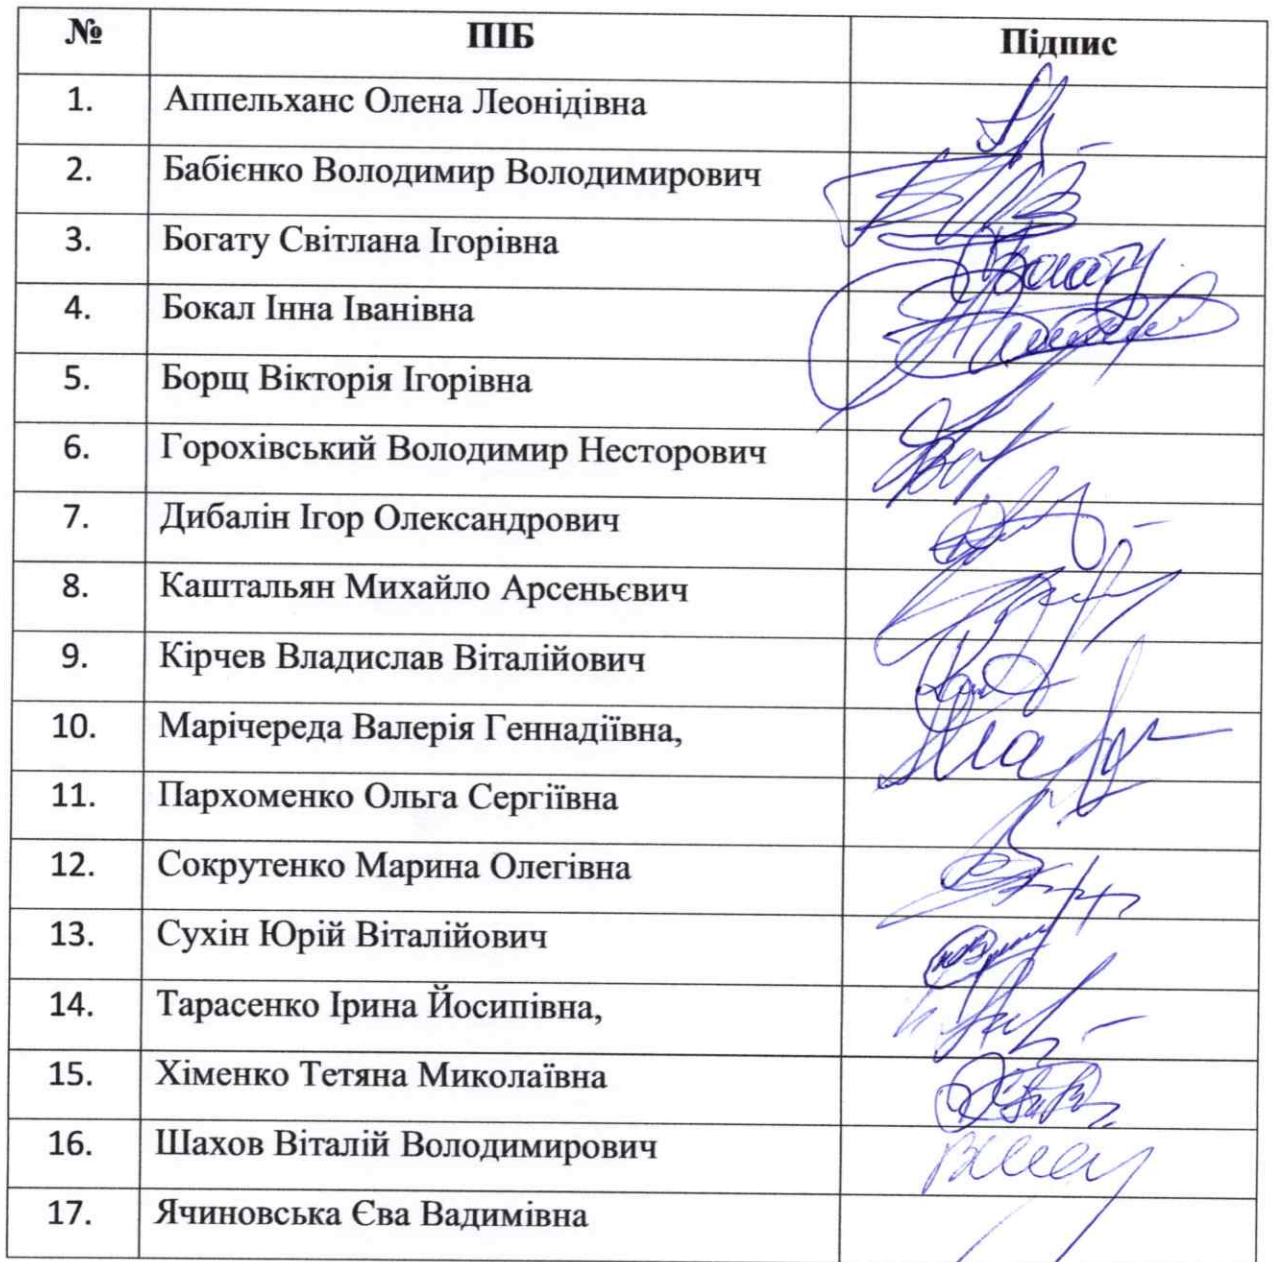 № ПІБ Підпис
1. Аппельханс Олена Леонідівна
2. Бабієнко Володимир Володимирович
3. Богату Світлана Ігорівна
4. Бокал Інна Іванівна
5. Борщ Вікторія Ігорівна
6. Горохівський Володимир Несторович
7. Дибалін Ігор Олександрович
8. Каштальян Михайло Арсеньєвич
9. Кірчев Владислав Віталійович
10. Марічереда Валерія Геннадіївна,
11. Пархоменко Ольга Сергіївна
12. Сокрутенко Марина Олегівна
13. Сухін Юрій Віталійович
14. Тарасенко Ірина Йосипівна,
15. Хіменко Тетяна Миколаївна
16. Шахов Віталій Володимирович
17. Ячиновська Єва Вадимівна